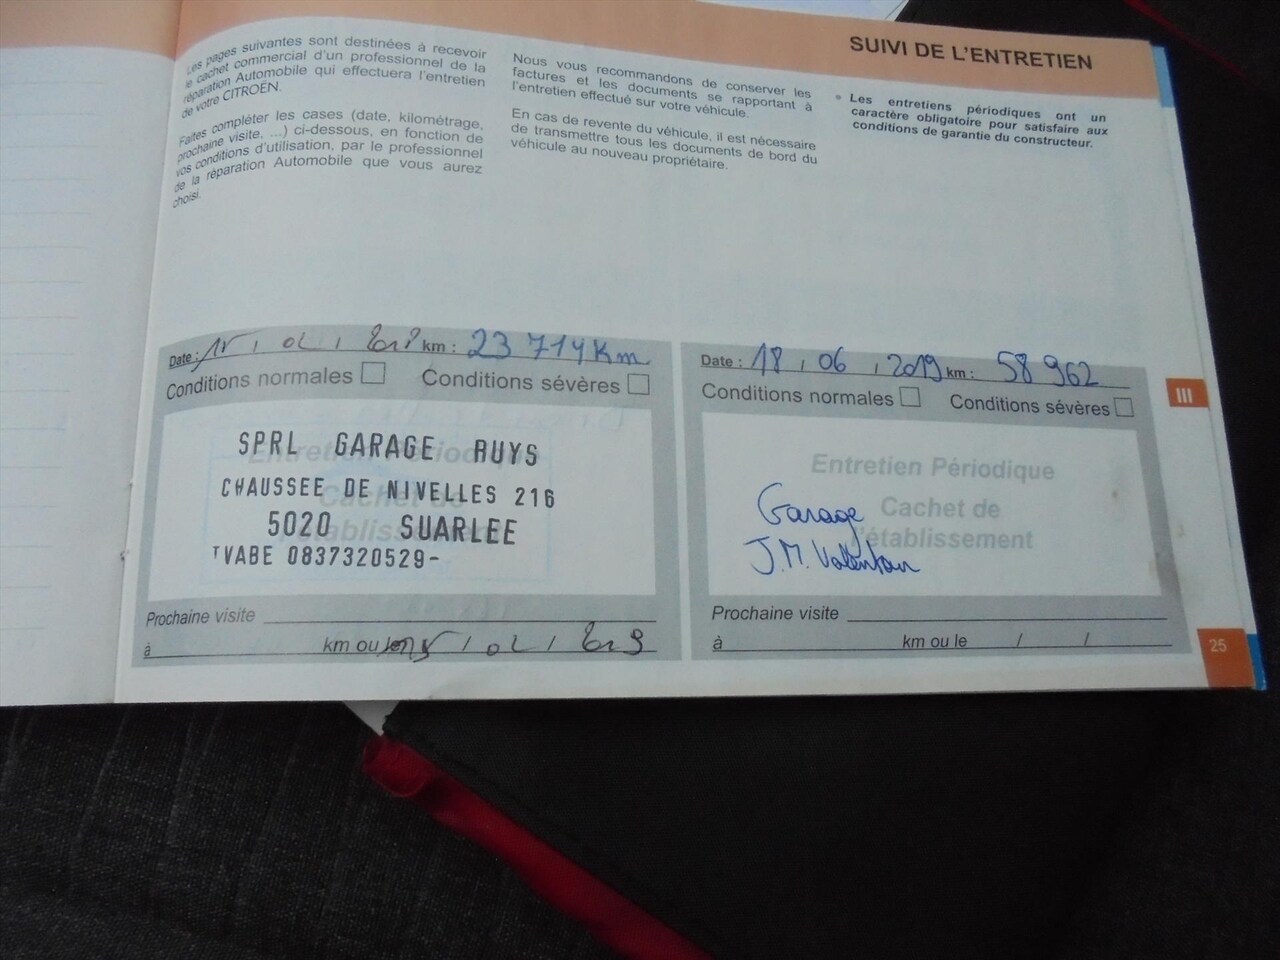 SUIVI DE L'ENTRETIEN
Les pages suivantes sont destinées à recevoir
le cachet commercial d'un professionnel de la
réparation Automobile qui effectuera l'entretien
de votre CITROËN.
Faites compléter les cases (date, kilométrage,
prochaine visite, ...) ci-dessous, en fonction de
vos conditions d'utilisation, par le professionnel
de la réparation Automobile que vous aurez
choisi.
Nous vous recommandons de conserver les
factures et les documents se rapportant à
l'entretien effectué sur votre véhicule.
En cas de revente du véhicule, il est nécessaire
de transmettre tous les documents de bord du
véhicule au nouveau propriétaire.
• Les entretiens périodiques ont un
caractère obligatoire pour satisfaire aux
conditions de garantie du constructeur.
Date : km : 23 714 Km
Conditions normales Conditions sévères
Entretien Périodique
Cachet de
l'établissement
SPRL GARAGE RUYS
CHAUSSEE DE NIVELLES 216
5020 SUARLEE
TVABE 0837320529-
Prochaine visite
à km ou le
Date : 18 / 06 / 2019 km : 58 962
Conditions normales Conditions sévères
Entretien Périodique
Cachet de
l'établissement
Garage
J.M.
Prochaine visite
à km ou le / /
III
25